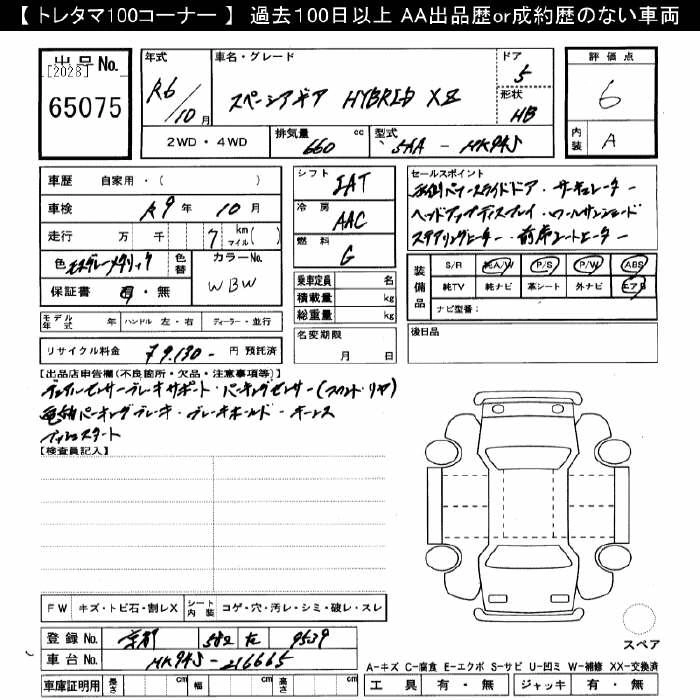 【 トレタマ100コーナー 】 過去100日以上 AA出品歴or成約歴のない車両
出品No.
[2028]
65075
年式
R6/10月
車名・グレード
スペーシアギア HYBRID XZ
ドア
5
形状
HB
評価点
6
内装 A
2WD・4WD
排気量 660 cc
型式 5AA - MK94S
車歴 自家用・( )
車検 R9年 10月
走行 万 千 7 km マイル( )
色 モスグレーメタリック 色替
カラーNo. WBW
保証書 有・無
シフト IAT
冷房 AAC
燃料 G
乗車定員 名
積載量 kg
総重量 kg
セールスポイント
両側パワースライドドア・サーキュレーター
ヘッドアップディスプレイ・ロールサンシェード
ステアリングヒーター・前席シートヒーター
装備品
S/R 純A/W P/S P/W ABS
純TV 純ナビ 革シート 外ナビ エアB
ナビ型番:
モデル年式 年 ハンドル 左・右 ディーラー・並行
名変期限
月 日
後日品
リサイクル料金 ¥9.130- 円 預託済
【出品店申告欄(不良箇所・欠品・注意事項等)】
デュアルセンサーブレーキサポート・パーキングセンサー(フロント・リヤ)
電動パーキングブレーキ・ブレーキホールド・キーレス
プッシュスタート
【検査員記入】
FW キズ・トビ石・割レX シート内装 コゲ・穴・汚レ・シミ・破レ・スレ
登録No. 京都 582 を 9539
車台No. MK94S-216665
車庫証明用 長さ cm 幅 cm 高さ cm
スペア
A-キズ C-腐食 E-エクボ S-サビ U-凹ミ W-補修 XX-交換済
工具 有・無 ジャッキ 有・無